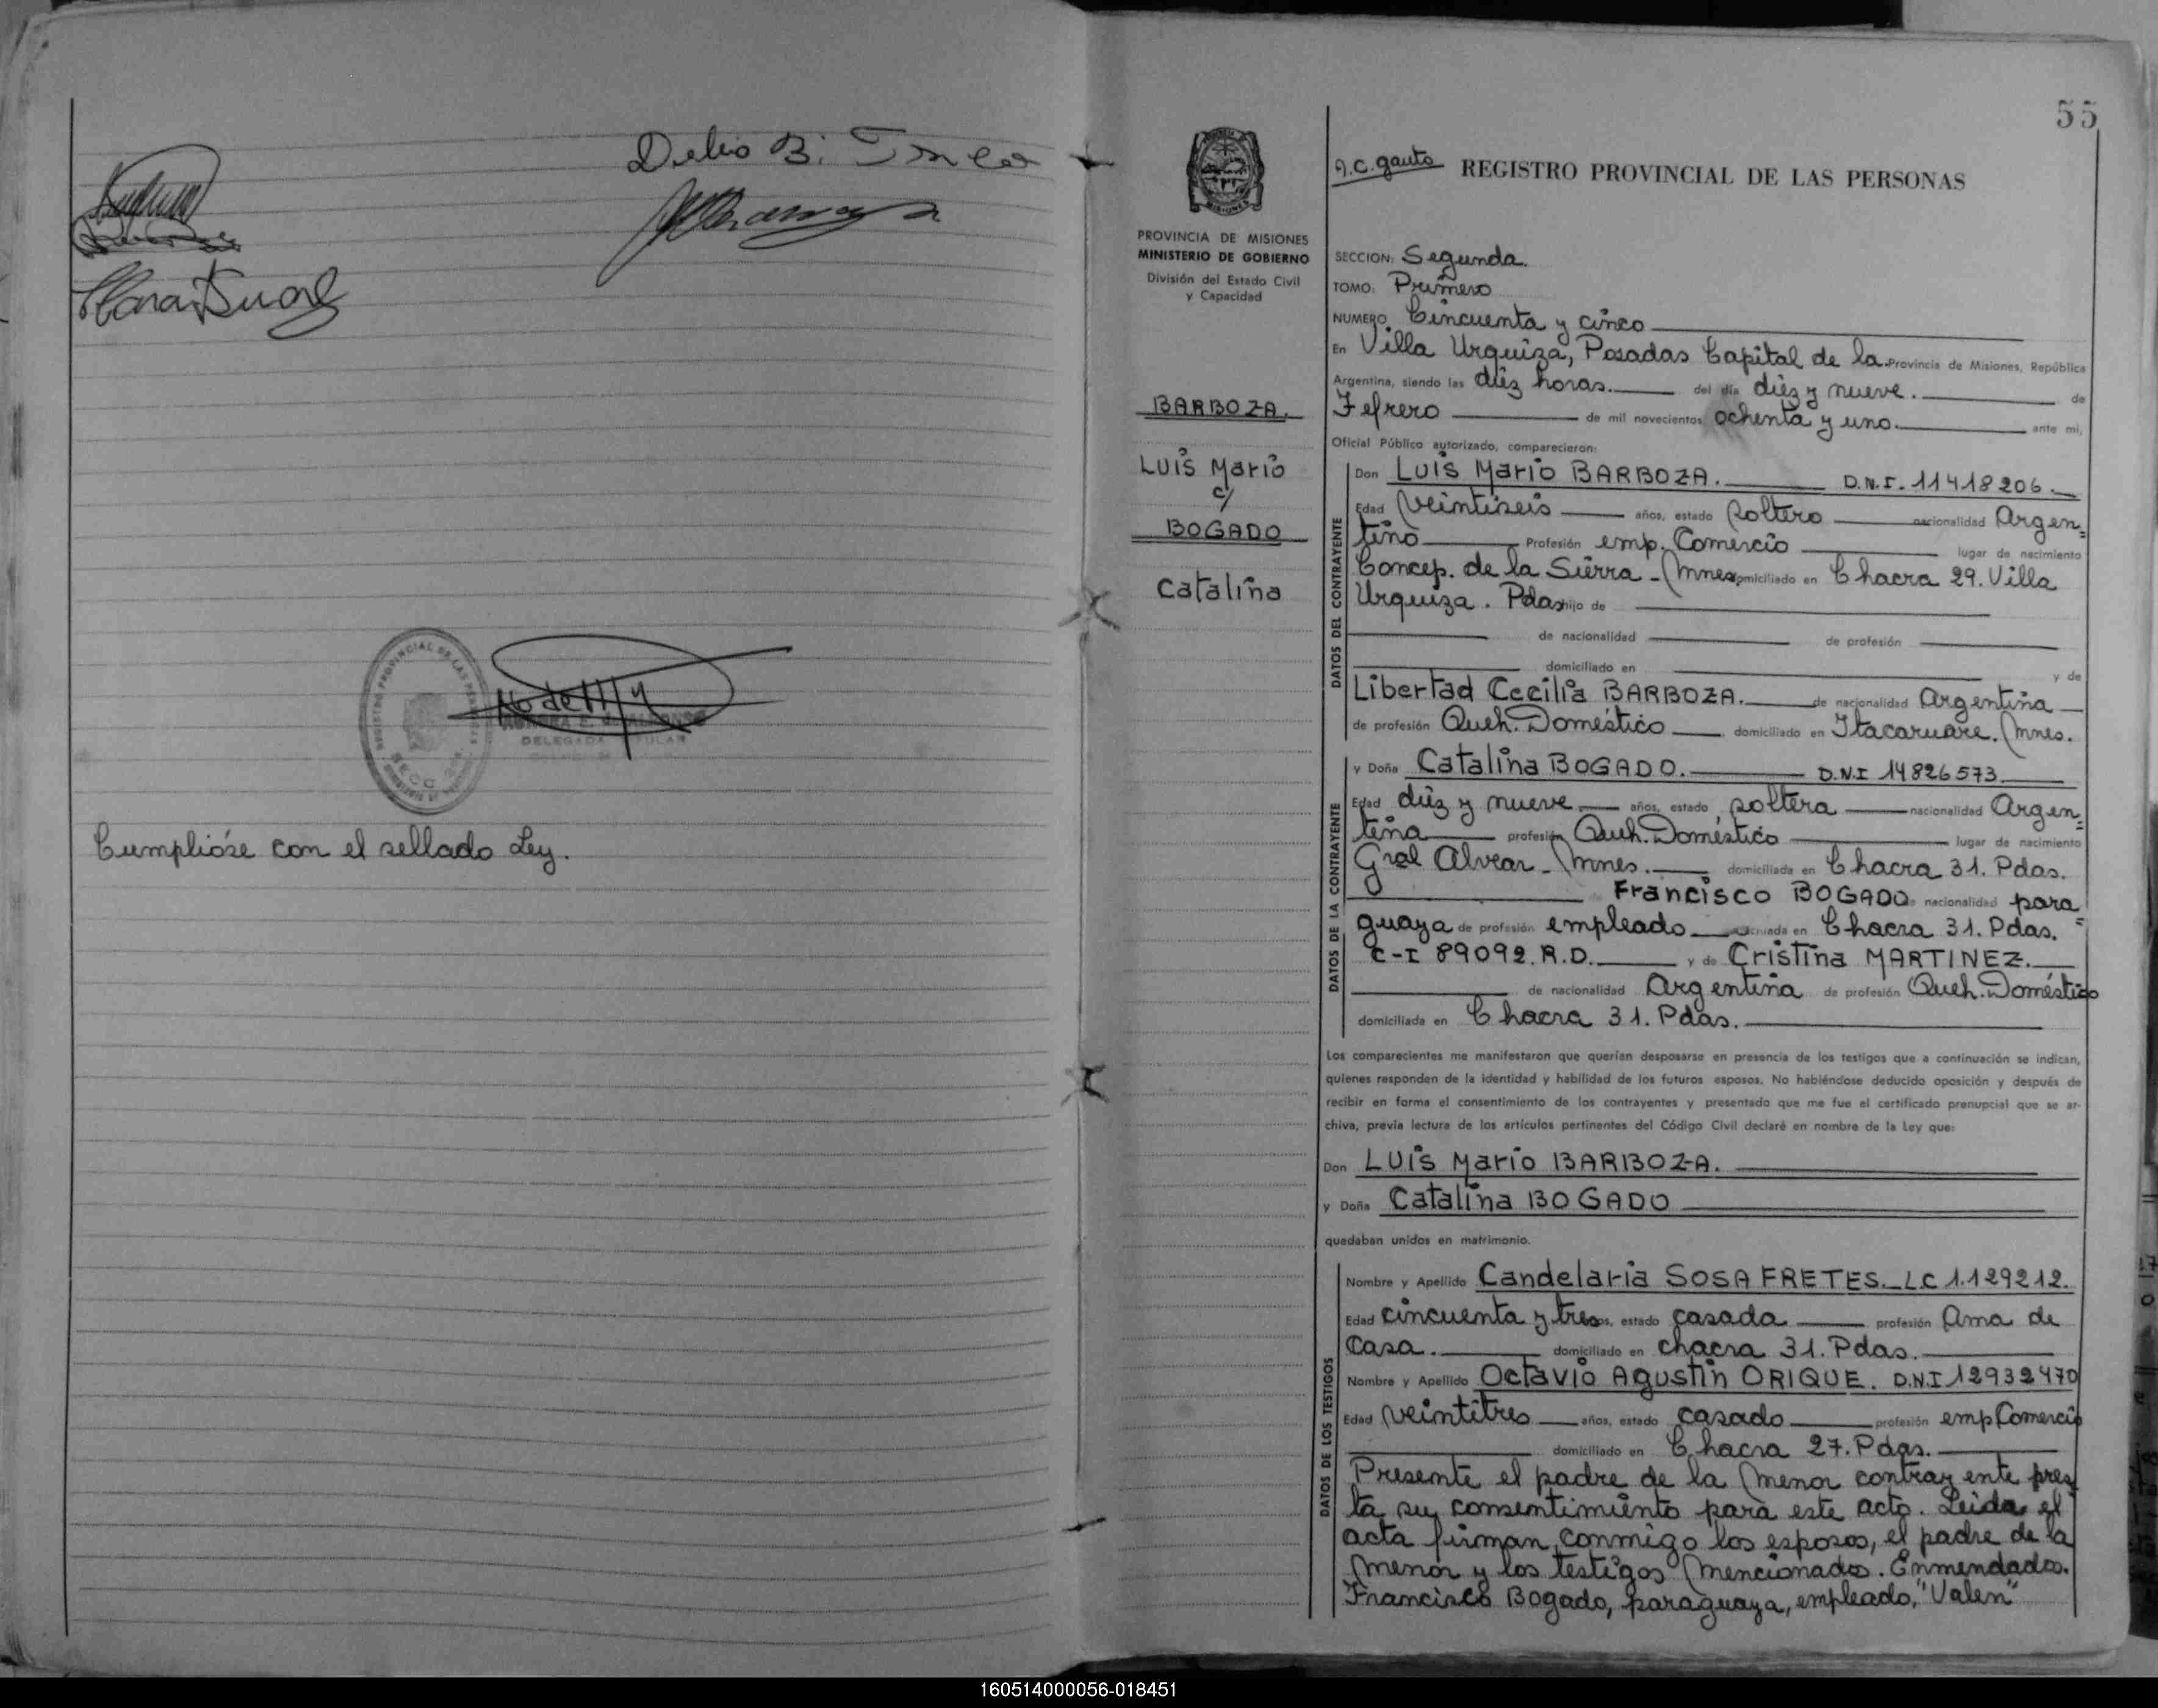 Delio B.
Cumplióse con el sellado Ley.
55
PROVINCIA DE MISIONES
MINISTERIO DE GOBIERNO
División del Estado Civil
y Capacidad
BARBOZA.
Luis Mario
c/
BOGADO
Catalina
A.C. gauto REGISTRO PROVINCIAL DE LAS PERSONAS
SECCION: Segunda.
TOMO: Primero
NUMERO Cincuenta y cinco
En Villa Urquiza, Posadas Capital de la Provincia de Misiones, República
Argentina, siendo las diéz horas. del día diéz y nueve. de
Fefrero de mil novecientos ochenta y uno. ante mi,
Oficial Público autorizado, comparecieron:
DATOS DEL CONTRAYENTE
Don Luis Mario BARBOZA. D.N.I. 11418206.
Edad Veintiseis años, estado soltero nacionalidad Argen=
tino Profesión emp. Comercio lugar de nacimiento
Concep. de la Sierra - Mnes domiciliado en Chacra 29. Villa
Urquiza. Pdas hijo de
de nacionalidad de profesión
domiciliado en y de
Libertad Cecilia BARBOZA. de nacionalidad Argentina
de profesión Queh. Doméstico domiciliado en Itacaruare. Mnes.
DATOS DE LA CONTRAYENTE
y Doña Catalina BOGADO. D.N.I 14826573
Edad diéz y nueve años, estado soltera nacionalidad Argen=
tina profesión Queh. Doméstico lugar de nacimiento
Gral Alvear - Mnes. domiciliada en Chacra 31. Pdas.
Francisco BOGADO nacionalidad para=
guaya de profesión empleado Chacra 31. Pdas.
C-I 89092. R.D. y de Cristina MARTINEZ.
de nacionalidad Argentina de profesión Queh. Doméstico
domiciliada en Chacra 31. Pdas.
Los comparecientes me manifestaron que querían desposarse en presencia de los testigos que a continuación se indican,
quienes responden de la identidad y habilidad de los futuros esposos. No habiéndose deducido oposición y después de
recibir en forma el consentimiento de los contrayentes y presentado que me fue el certificado prenupcial que se ar-
chiva, previa lectura de los artículos pertinentes del Código Civil declaré en nombre de la Ley que:
Don Luis Mario BARBOZA.
y Doña Catalina BOGADO
quedaban unidos en matrimonio.
DATOS DE LOS TESTIGOS
Nombre y Apellido Candelaria SOSA FRETES. LC 1.129212.
Edad cincuenta y tres años, estado casada profesión Ama de
Casa. domiciliado en chacra 31. Pdas.
Nombre y Apellido Octavio Agustin ORIQUE. D.N.I 12932470
Edad Veintitres años, estado casado profesión emp Comercio
domiciliado en Chacra 27. Pdas.
Presente el padre de la menor contrayente pres
ta su consentimiento para este acto. Leida el
acta firman conmigo los esposos, el padre de la
menor y los testigos mencionados. Enmendados.
Francisco Bogado, paraguaya, empleado, "Valen"
160514000056-018451